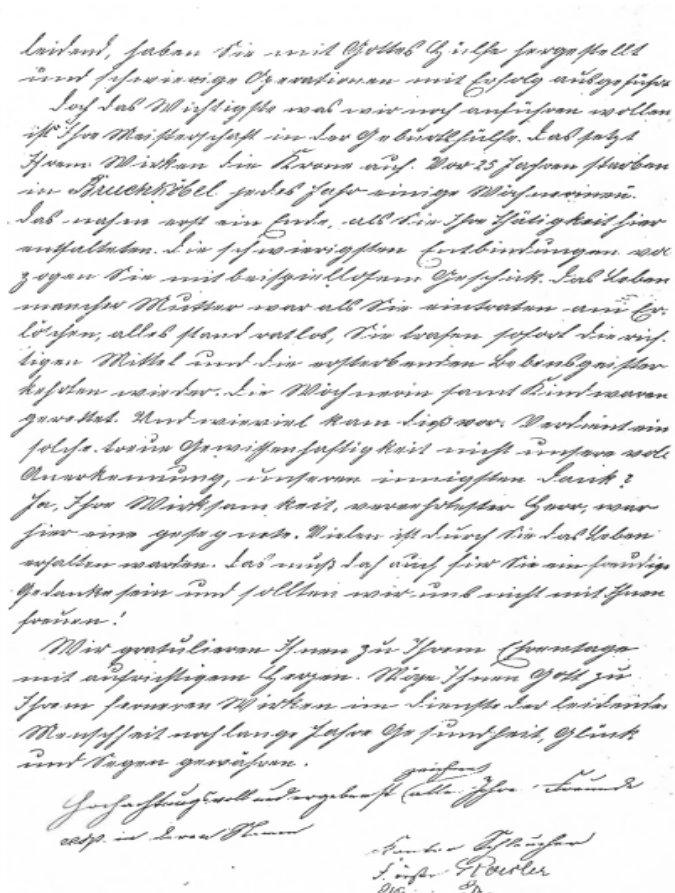 leidend, haben Sie mit Gottes Hülfe hergestellt
und schwierige Operationen mit Erfolg ausgeführt
Doch das Wichtigste was wir noch anführen wollen
ist Ihre Meisterschaft in der Geburtshülfe. Das setzt
Ihrem Wirken die Krone auf. Vor 25 Jahren starben
in Bruchköbel jedes Jahr einige Wöchnerinen.
Das nahm erst ein Ende, als Sie Ihre Thätigkeit hier
entfalteten. Die schwierigsten Entbindungen vol
zogen Sie mit beispiellosem Geschick. Das Leben
mancher Mutter war als Sie eintraten am Er-
löschen, alles stand ratlos, Sie trafen sofort die rich-
tigen Mittel und die ersterbenden Lebensgeister
kehrten wieder. Die Wöchnerin samt Kind waren
gerettet. Und wieviel kam dieß vor. Verdient ein
solche treue Gewissenhaftigkeit nicht unsere vol
Anerkennung, unseren innigsten Dank?
Ja, Ihre Wirksamkeit, verehrtester Herr, war
hier eine gesegnete. Vielen ist durch Sie das Leben
erhalten worden. Das muß doch auch für Sie ein freudige
Gedanke sein und sollten wir uns nicht mit Ihnen
freuen!
Wir gratulieren Ihnen zu Ihrem Ehrentage
mit aufrichtigem Herzen. Möge Ihnen Gott zu
Ihrem ferneren Wirken im Dienste der leidenden
Menschheit noch lange Jahre Gesundheit, Glück
und Segen gewähren.
zeichnen
Hochachtungsvoll und ergebenst (alle Ihre Freunde
resp. in deren Namen
Kantor Schleucher